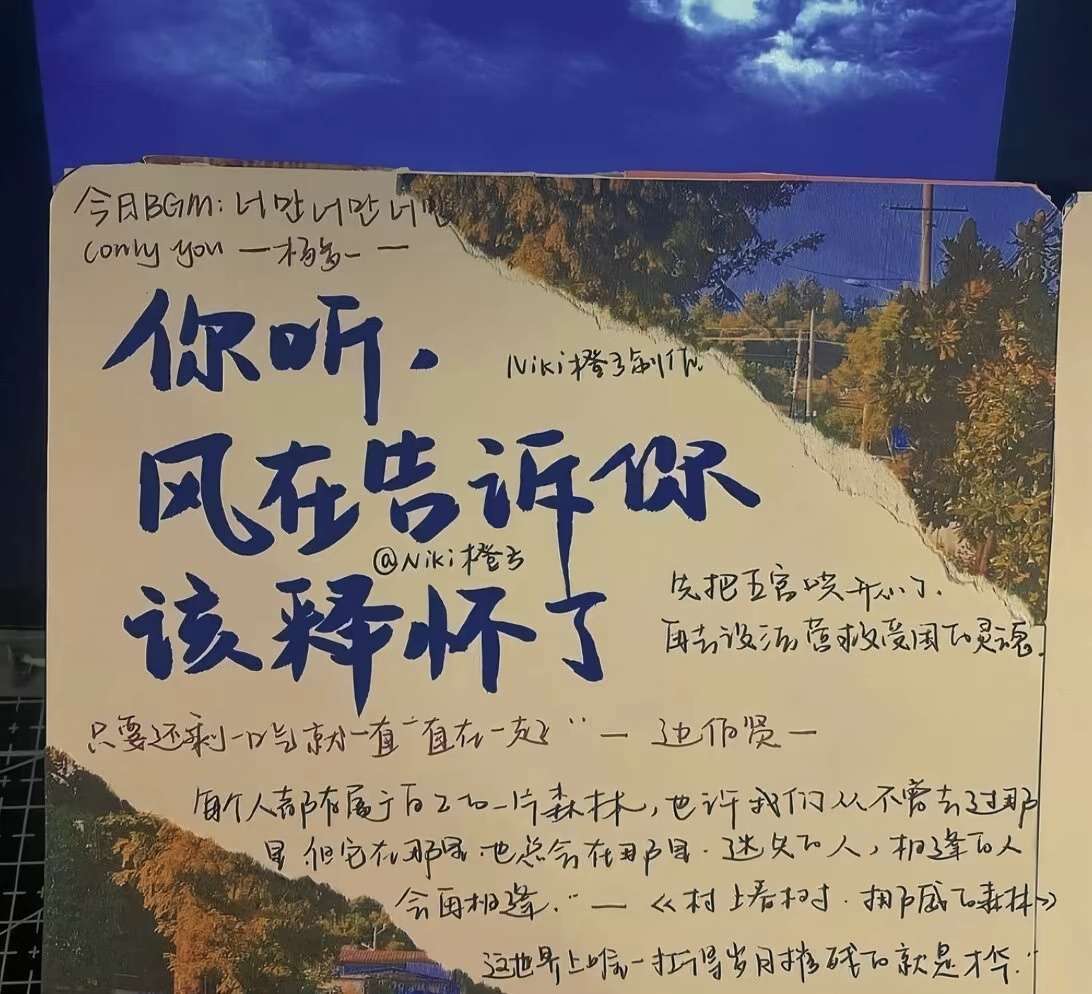 今日BGM: 너만너만너만
(only you 一杨多一 一
你听.
Niki橙子制作
风在告诉你
@Niki橙子
该释怀了
先把五官哄开心了.
再去设法营救受困的灵魂.
只要还剩一口气就一直一直在一起" 一 边伯贤一
每个人都有属于自己的一片森林,也许我们从不曾去过那
里 但它在那里.也总会在那里.迷失的人,相逢的人
会再相逢."一《村上春树.挪威的森林》
这世界上唯一扛得岁月摧残的就是才华."